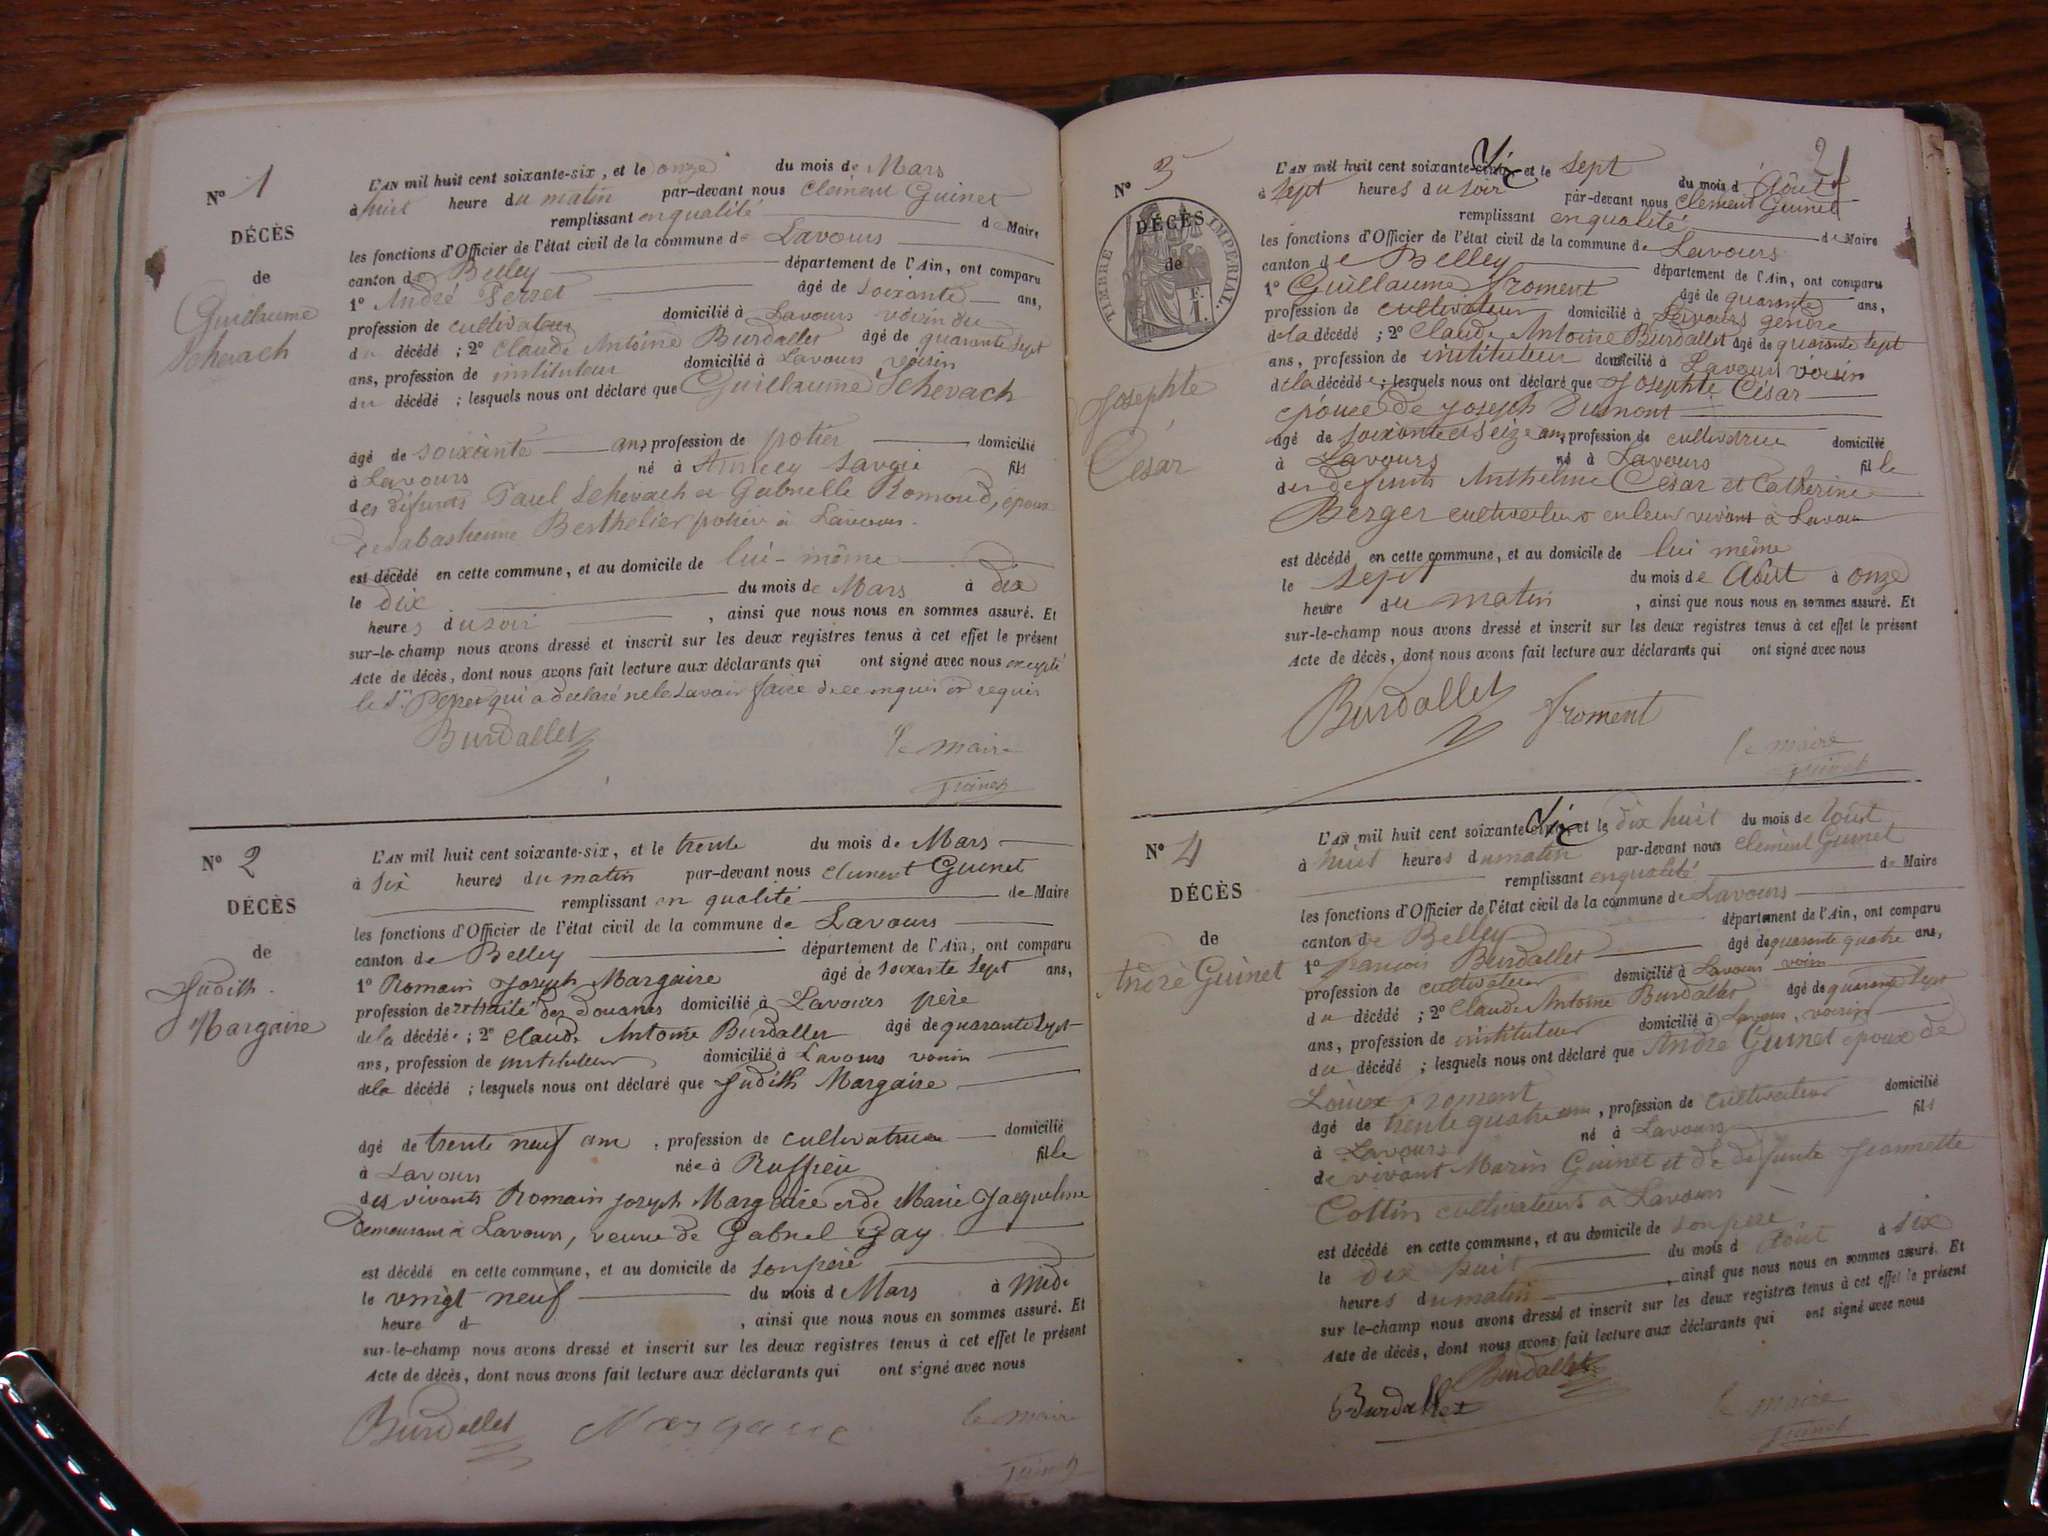 N° 1
DÉCÈS
de
Guillaume
Schevach
L'AN mil huit cent soixante-six, et le onze du mois de Mars
à huit heure du matin par-devant nous Clément Guinet
remplissant en qualité de Maire
les fonctions d'Officier de l'état civil de la commune de Lavours
canton de Belley département de l'Ain, ont comparu
1° André Perret âgé de soixante ans,
profession de cultivateur domicilié à Lavours voisin du
du décédé ; 2° Claude Antoine Burdallet âgé de quarante sept
ans, profession de instituteur domicilié à Lavours voisin
du décédé ; lesquels nous ont déclaré que Guillaume Schevach
âgé de soixante ans, profession de potier domicilié
à Lavours né à Annecy Savoie fils
des défunts Paul Schevach et Gabrielle Romoud, époux
de Sabasthienne Berthelier potier à Lavours.
est décédé en cette commune, et au domicile de lui-même
le dix du mois de Mars à dix
heures du soir , ainsi que nous nous en sommes assuré. Et
sur-le-champ nous avons dressé et inscrit sur les deux registres tenus à cet effet le présent
Acte de décès, dont nous avons fait lecture aux déclarants qui ont signé avec nous excepté
le Sr Perret qui a déclaré ne le savoir faire de ce enquis et requis
Burdallet le maire
Guinet
N° 2
DÉCÈS
de
Judith
Margaire
L'AN mil huit cent soixante-six, et le trente du mois de Mars
à Six heures du matin par-devant nous Clément Guinet
remplissant en qualité de Maire
les fonctions d'Officier de l'état civil de la commune de Lavours
canton de Belley département de l'Ain, ont comparu
1° Romain Joseph Margaire âgé de soixante sept ans,
profession de retraité des douanes domicilié à Lavours père
de la décédée ; 2° Claude Antoine Burdallet âgé de quarante sept
ans, profession de instituteur domicilié à Lavours voisin
de la décédé ; lesquels nous ont déclaré que Judith Margaire
âgé de trente neuf ans , profession de cultivatrice domicilié
à Lavours née à Ruffieu fille
des vivants Romain Joseph Margaire et de Marie Jacqueline
demeurant à Lavours, veuve de Gabriel Gay
est décédé en cette commune, et au domicile de son père
le vingt neuf du mois d Mars à midi
heure d , ainsi que nous nous en sommes assuré. Et
sur-le-champ nous avons dressé et inscrit sur les deux registres tenus à cet effet le présent
Acte de décès, dont nous avons fait lecture aux déclarants qui ont signé avec nous
Burdallet Margaire le maire
Guinet
2
N° 3
DÉCÈS
de
TIMBRE IMPÉRIAL.
1 F.
Josephte
César
L'AN mil huit cent soixante-cinq Six et le sept du mois d'Août
à sept heures du soir par-devant nous Clément Guinet
remplissant en qualité de Maire
les fonctions d'Officier de l'état civil de la commune de Lavours
canton de Belley département de l'Ain, ont comparu
1° Guillaume froment âgé de quarante ans,
profession de cultivateur domicilié à Lavours gendre
de la décédé ; 2° Claude Antoine Burdallet âgé de quarante sept
ans, profession de instituteur domicilié à Lavours voisin
de la décédée ; lesquels nous ont déclaré que Josephte César
épouse de Joseph Dumont
âgé de soixante et seize ans, profession de cultivatrice domicilié
à Lavours né à Lavours fille
des défunts Anthelme César et Catherine
Berger cultivateurs en leur vivant à Lavours
est décédé en cette commune, et au domicile de lui même
le sept du mois de Août à onze
heure du matin , ainsi que nous nous en sommes assuré. Et
sur-le-champ nous avons dressé et inscrit sur les deux registres tenus à cet effet le présent
Acte de décès, dont nous avons fait lecture aux déclarants qui ont signé avec nous
Burdallet froment
le maire
Guinet
N° 4
DÉCÈS
de
André Guinet
L'AN mil huit cent soixante-cinq Six, et le dix huit du mois de Août
à huit heures du matin par-devant nous Clément Guinet
remplissant en qualité de Maire
les fonctions d'Officier de l'état civil de la commune de Lavours
canton de Belley département de l'Ain, ont comparu
1° françois Burdallet âgé de quarante quatre ans,
profession de cultivateur domicilié à Lavours voisin
du décédé ; 2° Claude Antoine Burdallet âgé de quarante sept
ans, profession de instituteur domicilié à Lavours, voisin
du décédé ; lesquels nous ont déclaré que André Guinet époux de
froment
âgé de trente quatre ans , profession de cultivateur domicilié
à Lavours né à Lavours fils
de vivant Marin Guinet et de défunte Jeannette
Cottin cultivateurs à Lavours
est décédé en cette commune, et au domicile de son père
le dix huit du mois d Août à six
heures du matin , ainsi que nous nous en sommes assuré. Et
sur le-champ nous avons dressé et inscrit sur les deux registres tenus à cet effet le présent
Acte de décès, dont nous avons fait lecture aux déclarants qui ont signé avec nous
Burdallet Burdallet
le maire
Guinet